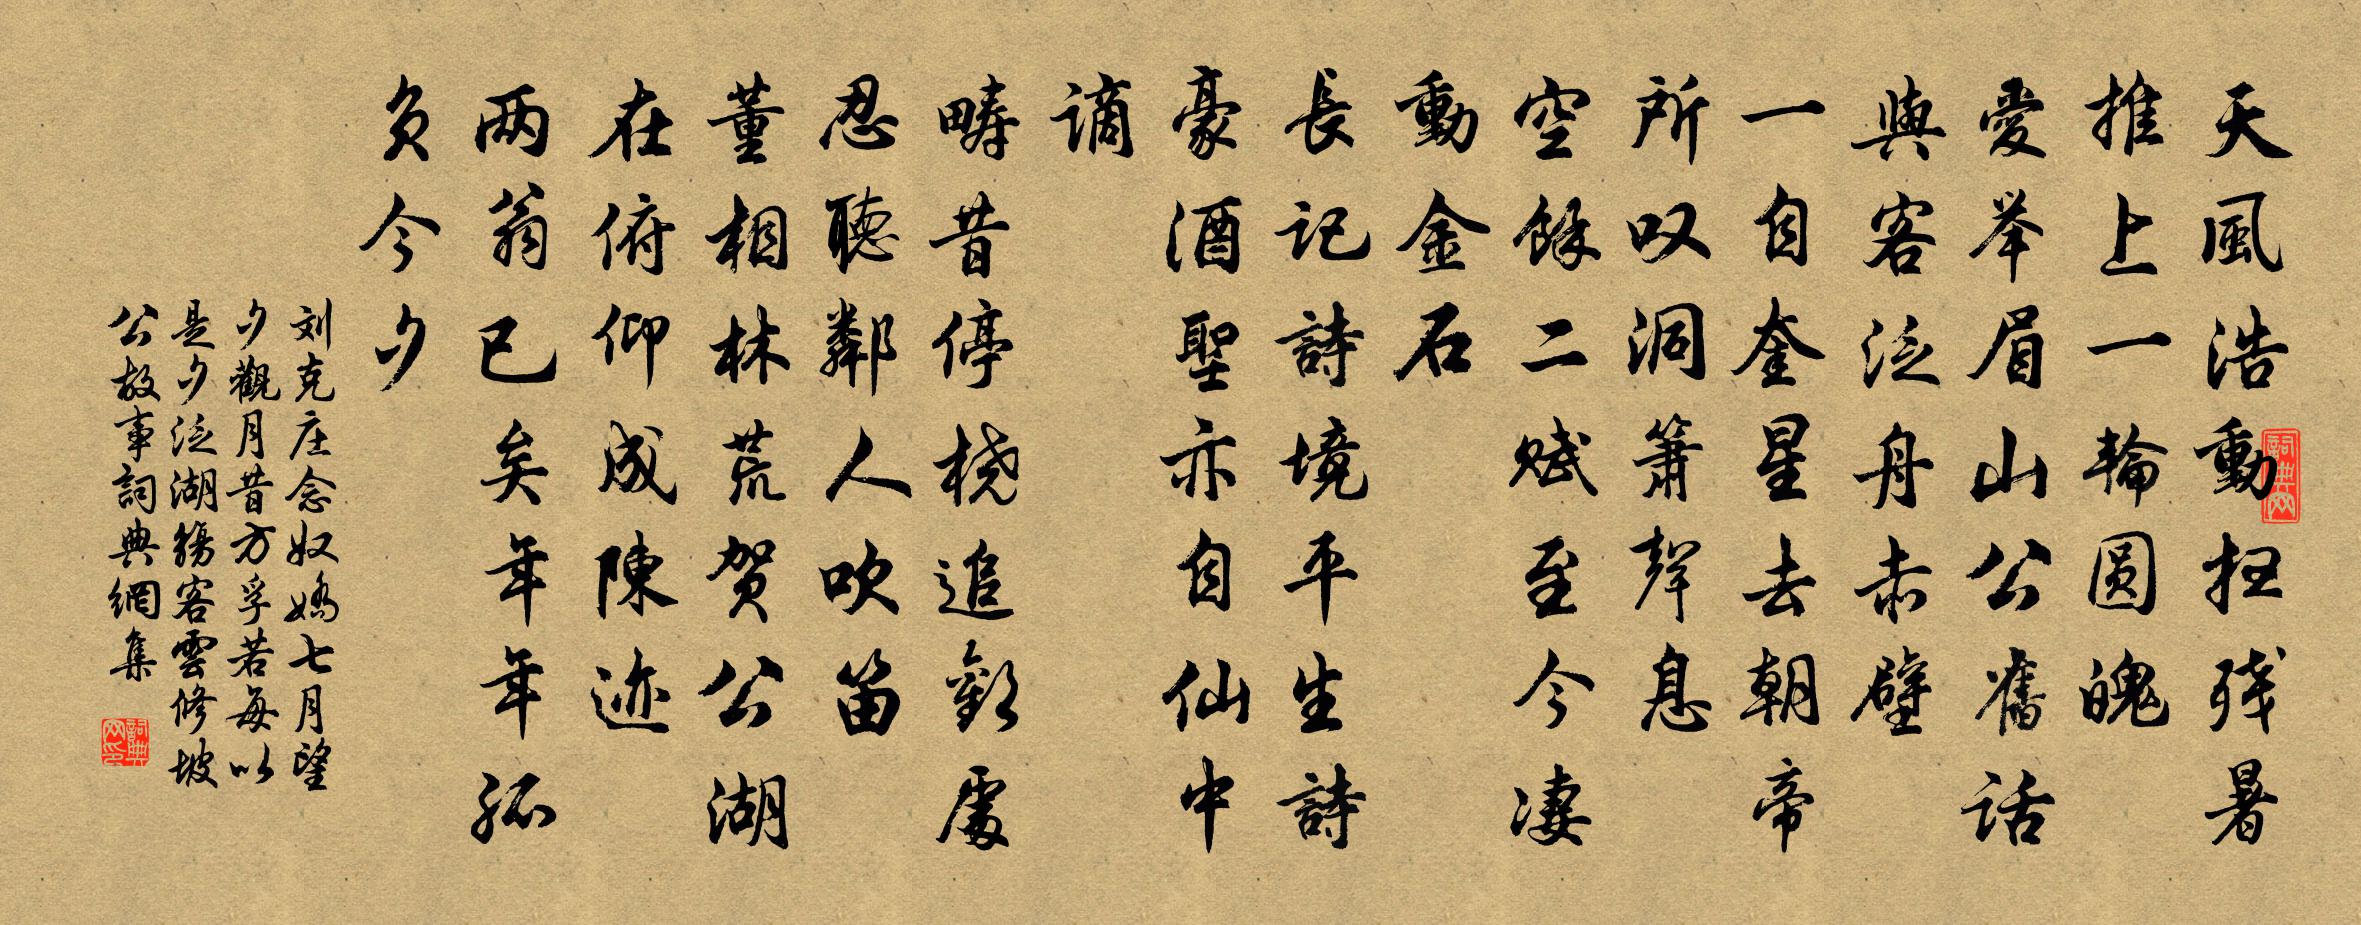 天風浩動扫残暑
推上一輪圆魄
愛举眉山公舊话
與客泛舟赤壁
一自奎星去朝帝
所叹洞箫聲息
空餘二赋至今凄
動金石
長记詩境平生詩
豪酒聖亦自仙中
谪
畴昔停桡追歡處
忍聽鄰人吹笛
董相林荒贺公湖
在俯仰成陳迹
两翁已矣年年孤
负今夕
刘克庄念奴嬌七月望
夕觀月昔方孚若每以
是夕泛湖觴客雲修坡
公故事詞典網集
詞典网
詞典网印